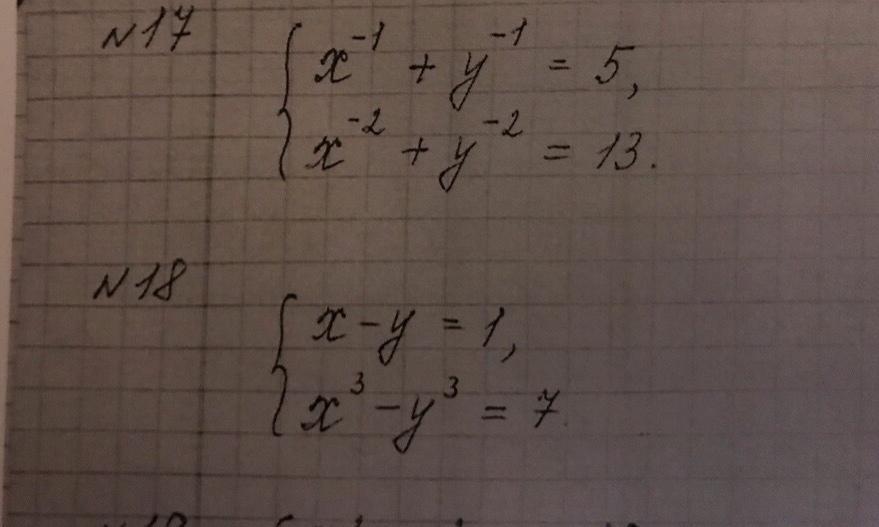 №17
x⁻¹ + y⁻¹ = 5,
x⁻² + y⁻² = 13.
№18
x - y = 1,
x³ - y³ = 7